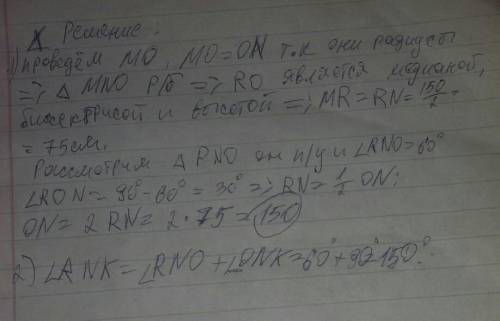 Решение:
1) проведём MO, MO=ON т.к они радиусы
=> △ MNO р/б => RO является медианой,
биссектрисой и высотой => MR=RN=150/2=
=75см.
Рассмотрим △ RNO он п/у и ∠RNO=60°
∠RON=90°-60°=30° => RN=1/2 ON;
ON=2RN=2·75=150
2) ∠ANK=∠RNO+∠ONK=60°+90=150°.